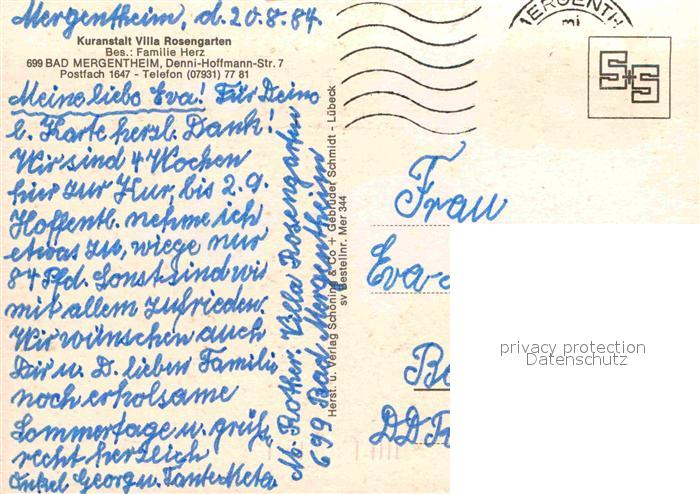 Mergentheim, d. 20.8.84.
Kuranstalt Villa Rosengarten
Bes.: Familie Herz
699 BAD MERGENTHEIM, Denni-Hoffmann-Str. 7
Postfach 1647 - Telefon (07931) 77 81
Meine liebe Eva! Für Deine
l. Karte herzl. Dank!
Wir sind 4 Wochen
hier zur Kur, bis 2.9.
Hoffentl. nehme ich
etwas zu, wiege nur
84 Pfd. Sonst sind wir
mit allem zufrieden.
Wir wünschen auch
Dir u. D. lieben Familie
noch erholsame
Sommertage u. grüße
recht herzlich
Onkel Georg u. Tante Meta
Ab. Rother. Villa Rosengarten
699 Bad Mergentheim
Herst. u. Verlag Schöning & Co + Gebrüder Schmidt - Lübeck
sv Bestellnr. Mer 344
MERGENTH
mi
S+S
Frau
Eva-
privacy protection
Datenschutz